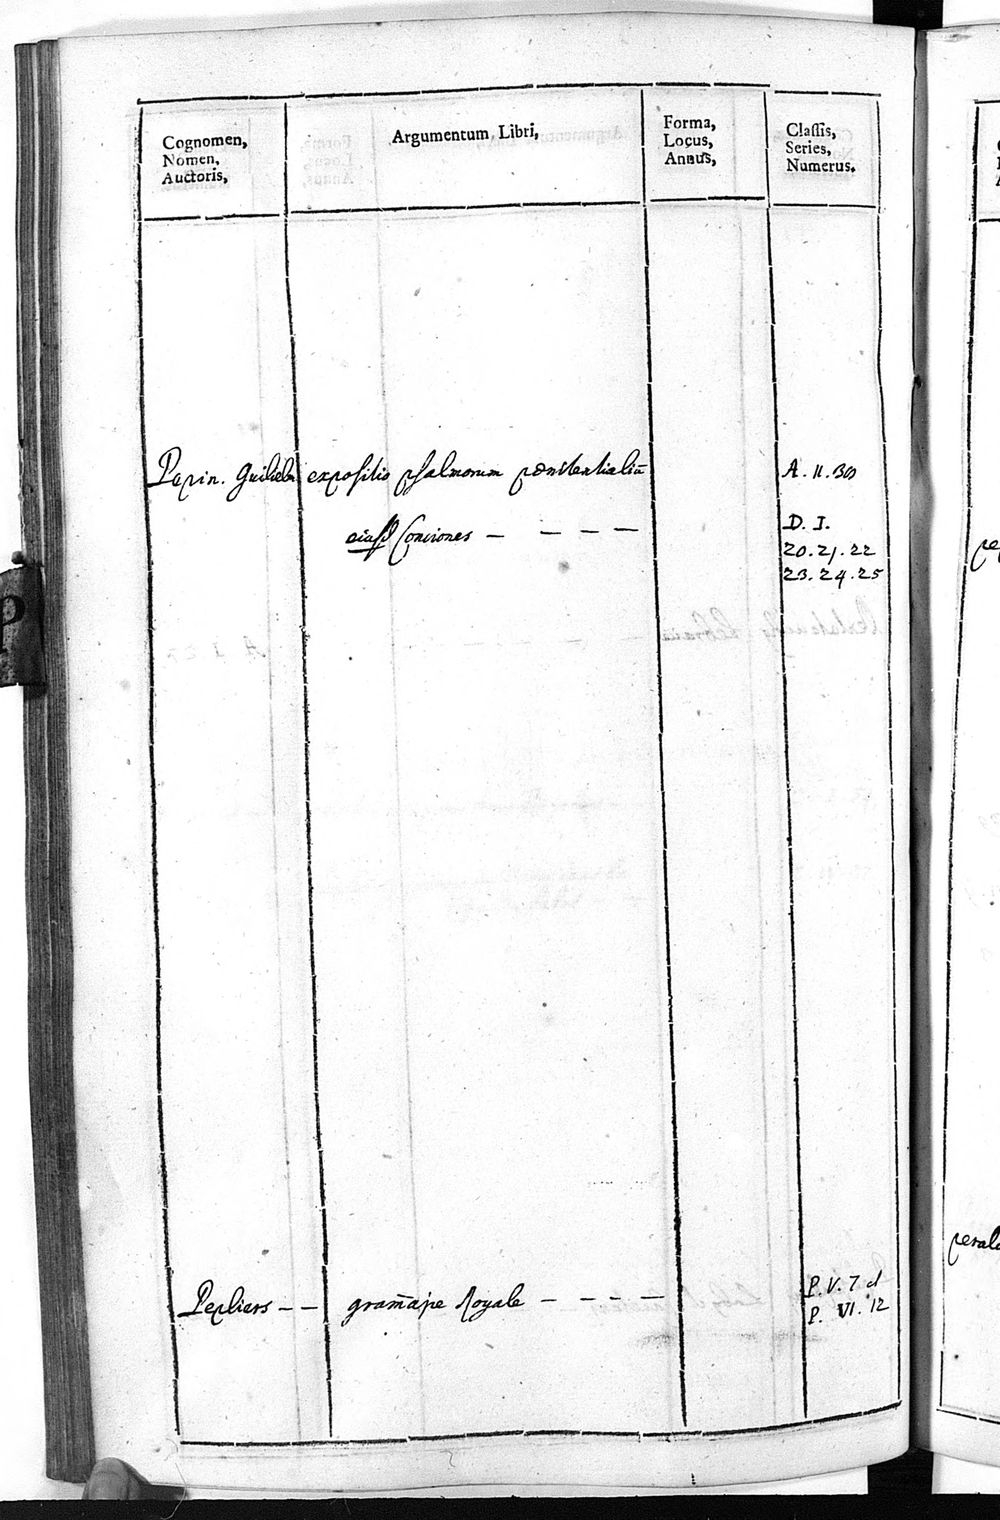 Cognomen,
Nomen,
Auctoris,
Argumentum Libri,
Forma,
Locus,
Annus,
Classis,
Series,
Numerus.
Pepin. Guilielm expositio psalmorum pœnitentialiū A. II. 30
eiusd Conciones - - - - D. I.
20. 21. 22
23. 24. 25
P
Pepliers - - gram̄aire Royale - - - - P. V. 7 et
P. VI. 12